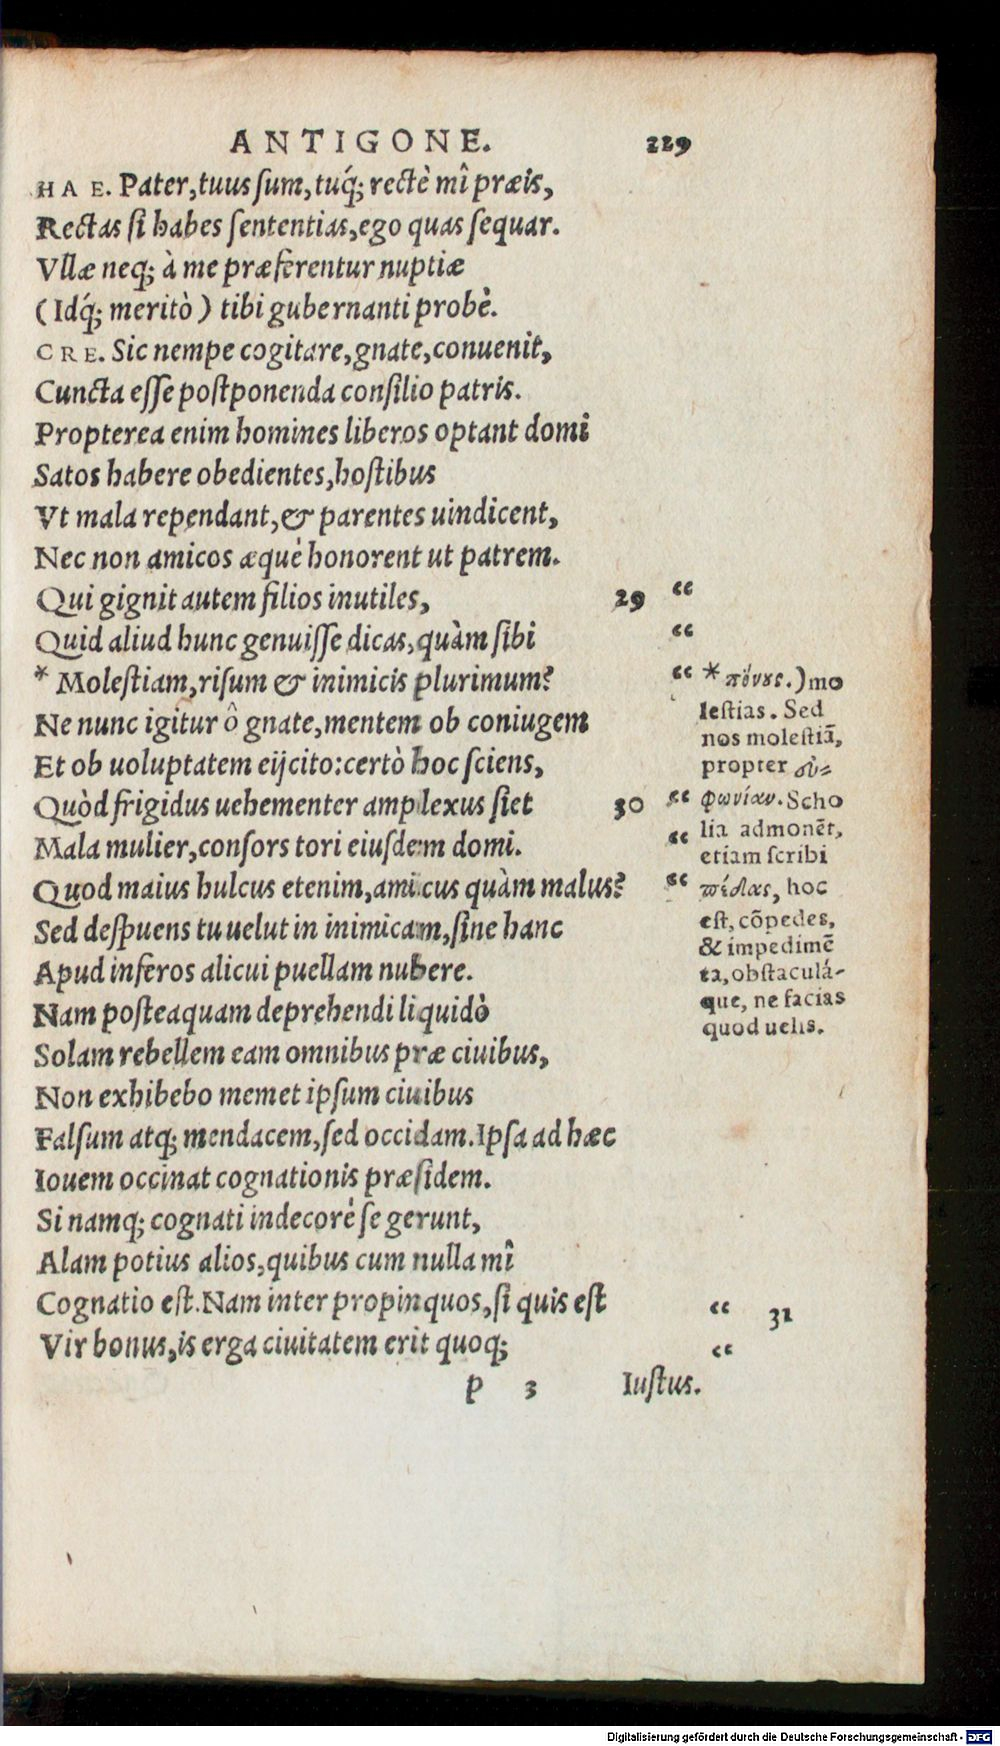 ANTIGONE. 229
HAE. Pater,tuus sum,tuq́; rectè mî præis,
Rectas si habes sententias,ego quas sequar.
Vllæ neq; à me præferentur nuptiæ
(Idq́; meritò) tibi gubernanti probè.
CRE. Sic nempe cogitare,gnate,conuenit,
Cuncta esse postponenda consilio patris.
Propterea enim homines liberos optant domi
Satos habere obedientes,hostibus
Vt mala rependant,& parentes uindicent,
Nec non amicos æquè honorent ut patrem.
Qui gignit autem filios inutiles, 29 “
Quid aliud hunc genuisse dicas,quàm sibi “
* Molestiam,risum & inimicis plurimum? “
Ne nunc igitur ô gnate,mentem ob coniugem
Et ob uoluptatem eijcito:certò hoc sciens,
Quòd frigidus uehementer amplexus siet 30 “
Mala mulier,consors tori eiusdem domi. “
Quod maius hulcus etenim,amicus quàm malus? “
Sed despuens tu uelut in inimicam,sine hanc
Apud inferos alicui puellam nubere.
Nam posteaquam deprehendi liquidò
Solam rebellem eam omnibus præ ciuibus,
Non exhibebo memet ipsum ciuibus
Falsum atq; mendacem,sed occidam.Ipsa ad hæc
Iouem occinat cognationis præsidem.
Si namq; cognati indecorè se gerunt,
Alam potius alios,quibus cum nulla mî
Cognatio est.Nam inter propinquos,si quis est “ 31
Vir bonus,is erga ciuitatem erit quoq; “
p 3 Iustus.
* πόνους.)mo
lestias. Sed
nos molestiā,
propter συ-
φωνίαν. Scho
lia admonēt,
etiam scribi
πέδας, hoc
est, cōpedes,
& impedimē
ta,obstaculá-
que, ne facias
quod uelis.
Digitalisierung gefördert durch die Deutsche Forschungsgemeinschaft - DFG